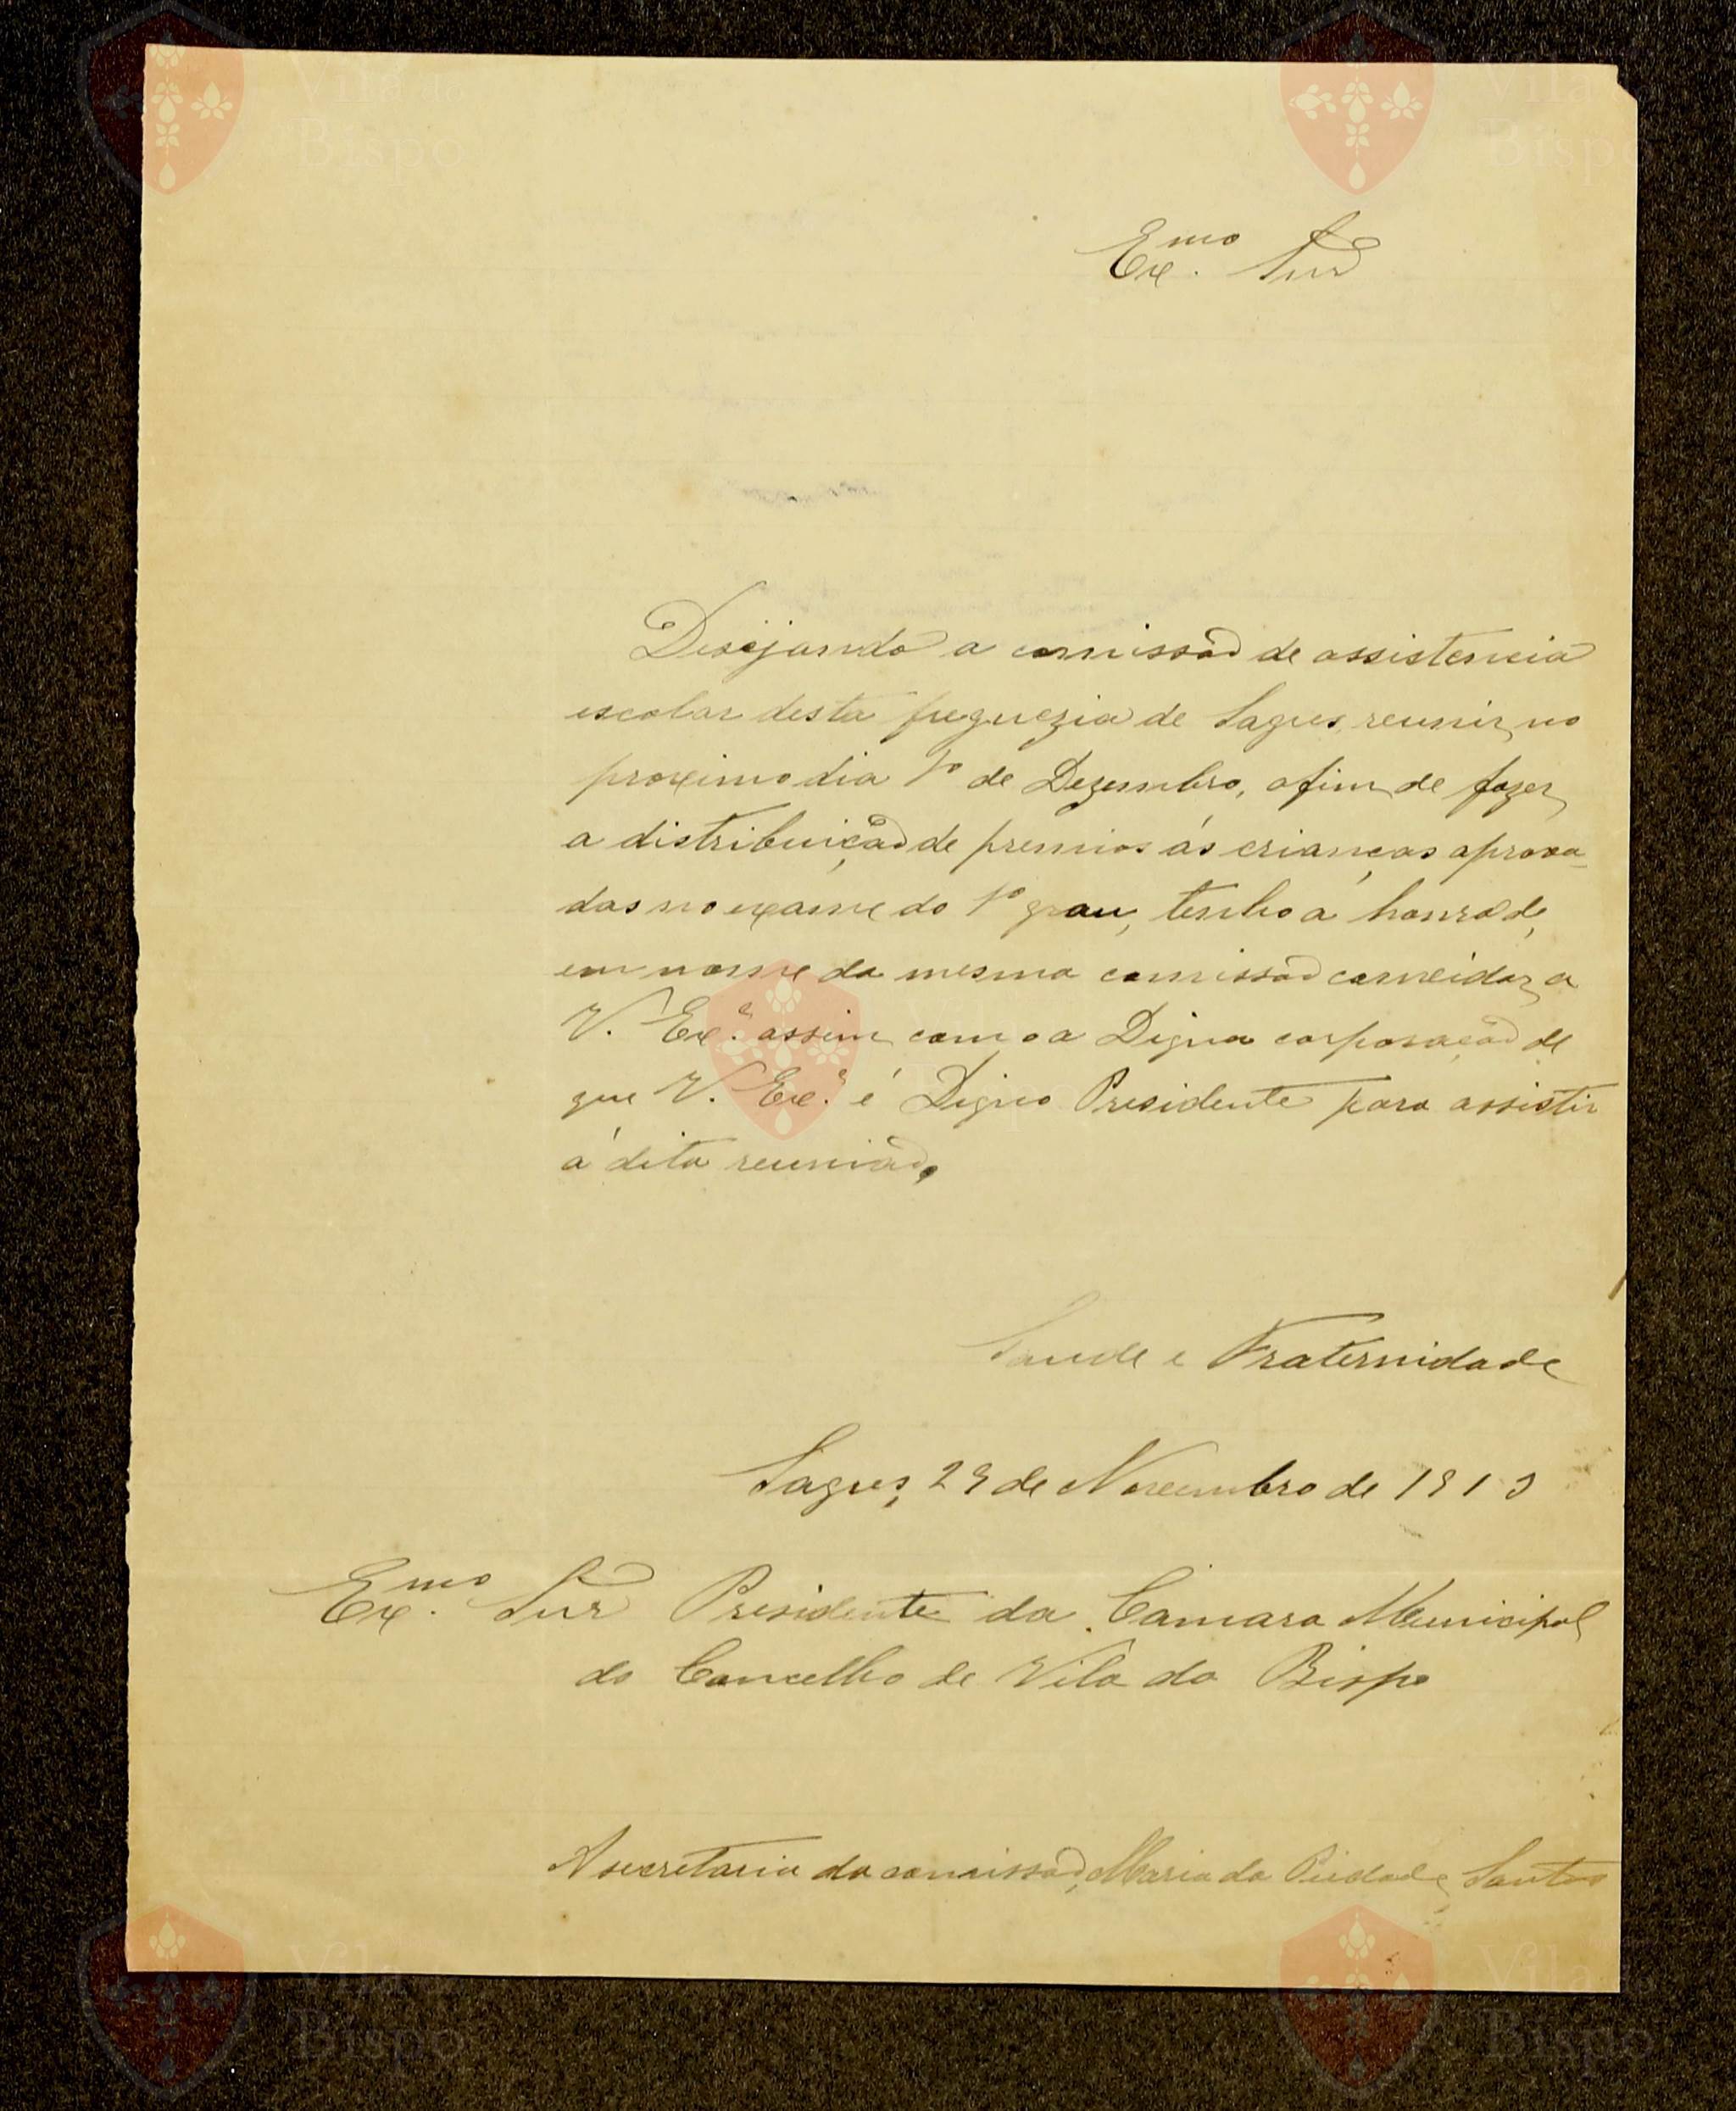 Ex.mo Snr
Desejando a comissão de assistencia
escolar desta freguezia de Sagres, reunir no
proximo dia 1º de Dezembro, afim de fazer
a distribuição de premios ás crianças aprova-
das no exame do 1º grau, tenho a honra de,
em nome da mesma comissão convidar a
V. Ex.ª assim como a Digna corporação de
que V. Ex.ª é Digno Presidente para assistir
á dita reunião.
Saude e Fraternidade
Sagres, 29 de Novembro de 1913
Ex.mo Snr Presidente da Camara Municipal
do Concelho de Vila do Bispo
A secretaria da comissão, Maria da Piedade Santos
Vila do
Bispo
Vila do
Bispo
Vila do
Bispo
Vila do
Bispo
Vila do
Bispo